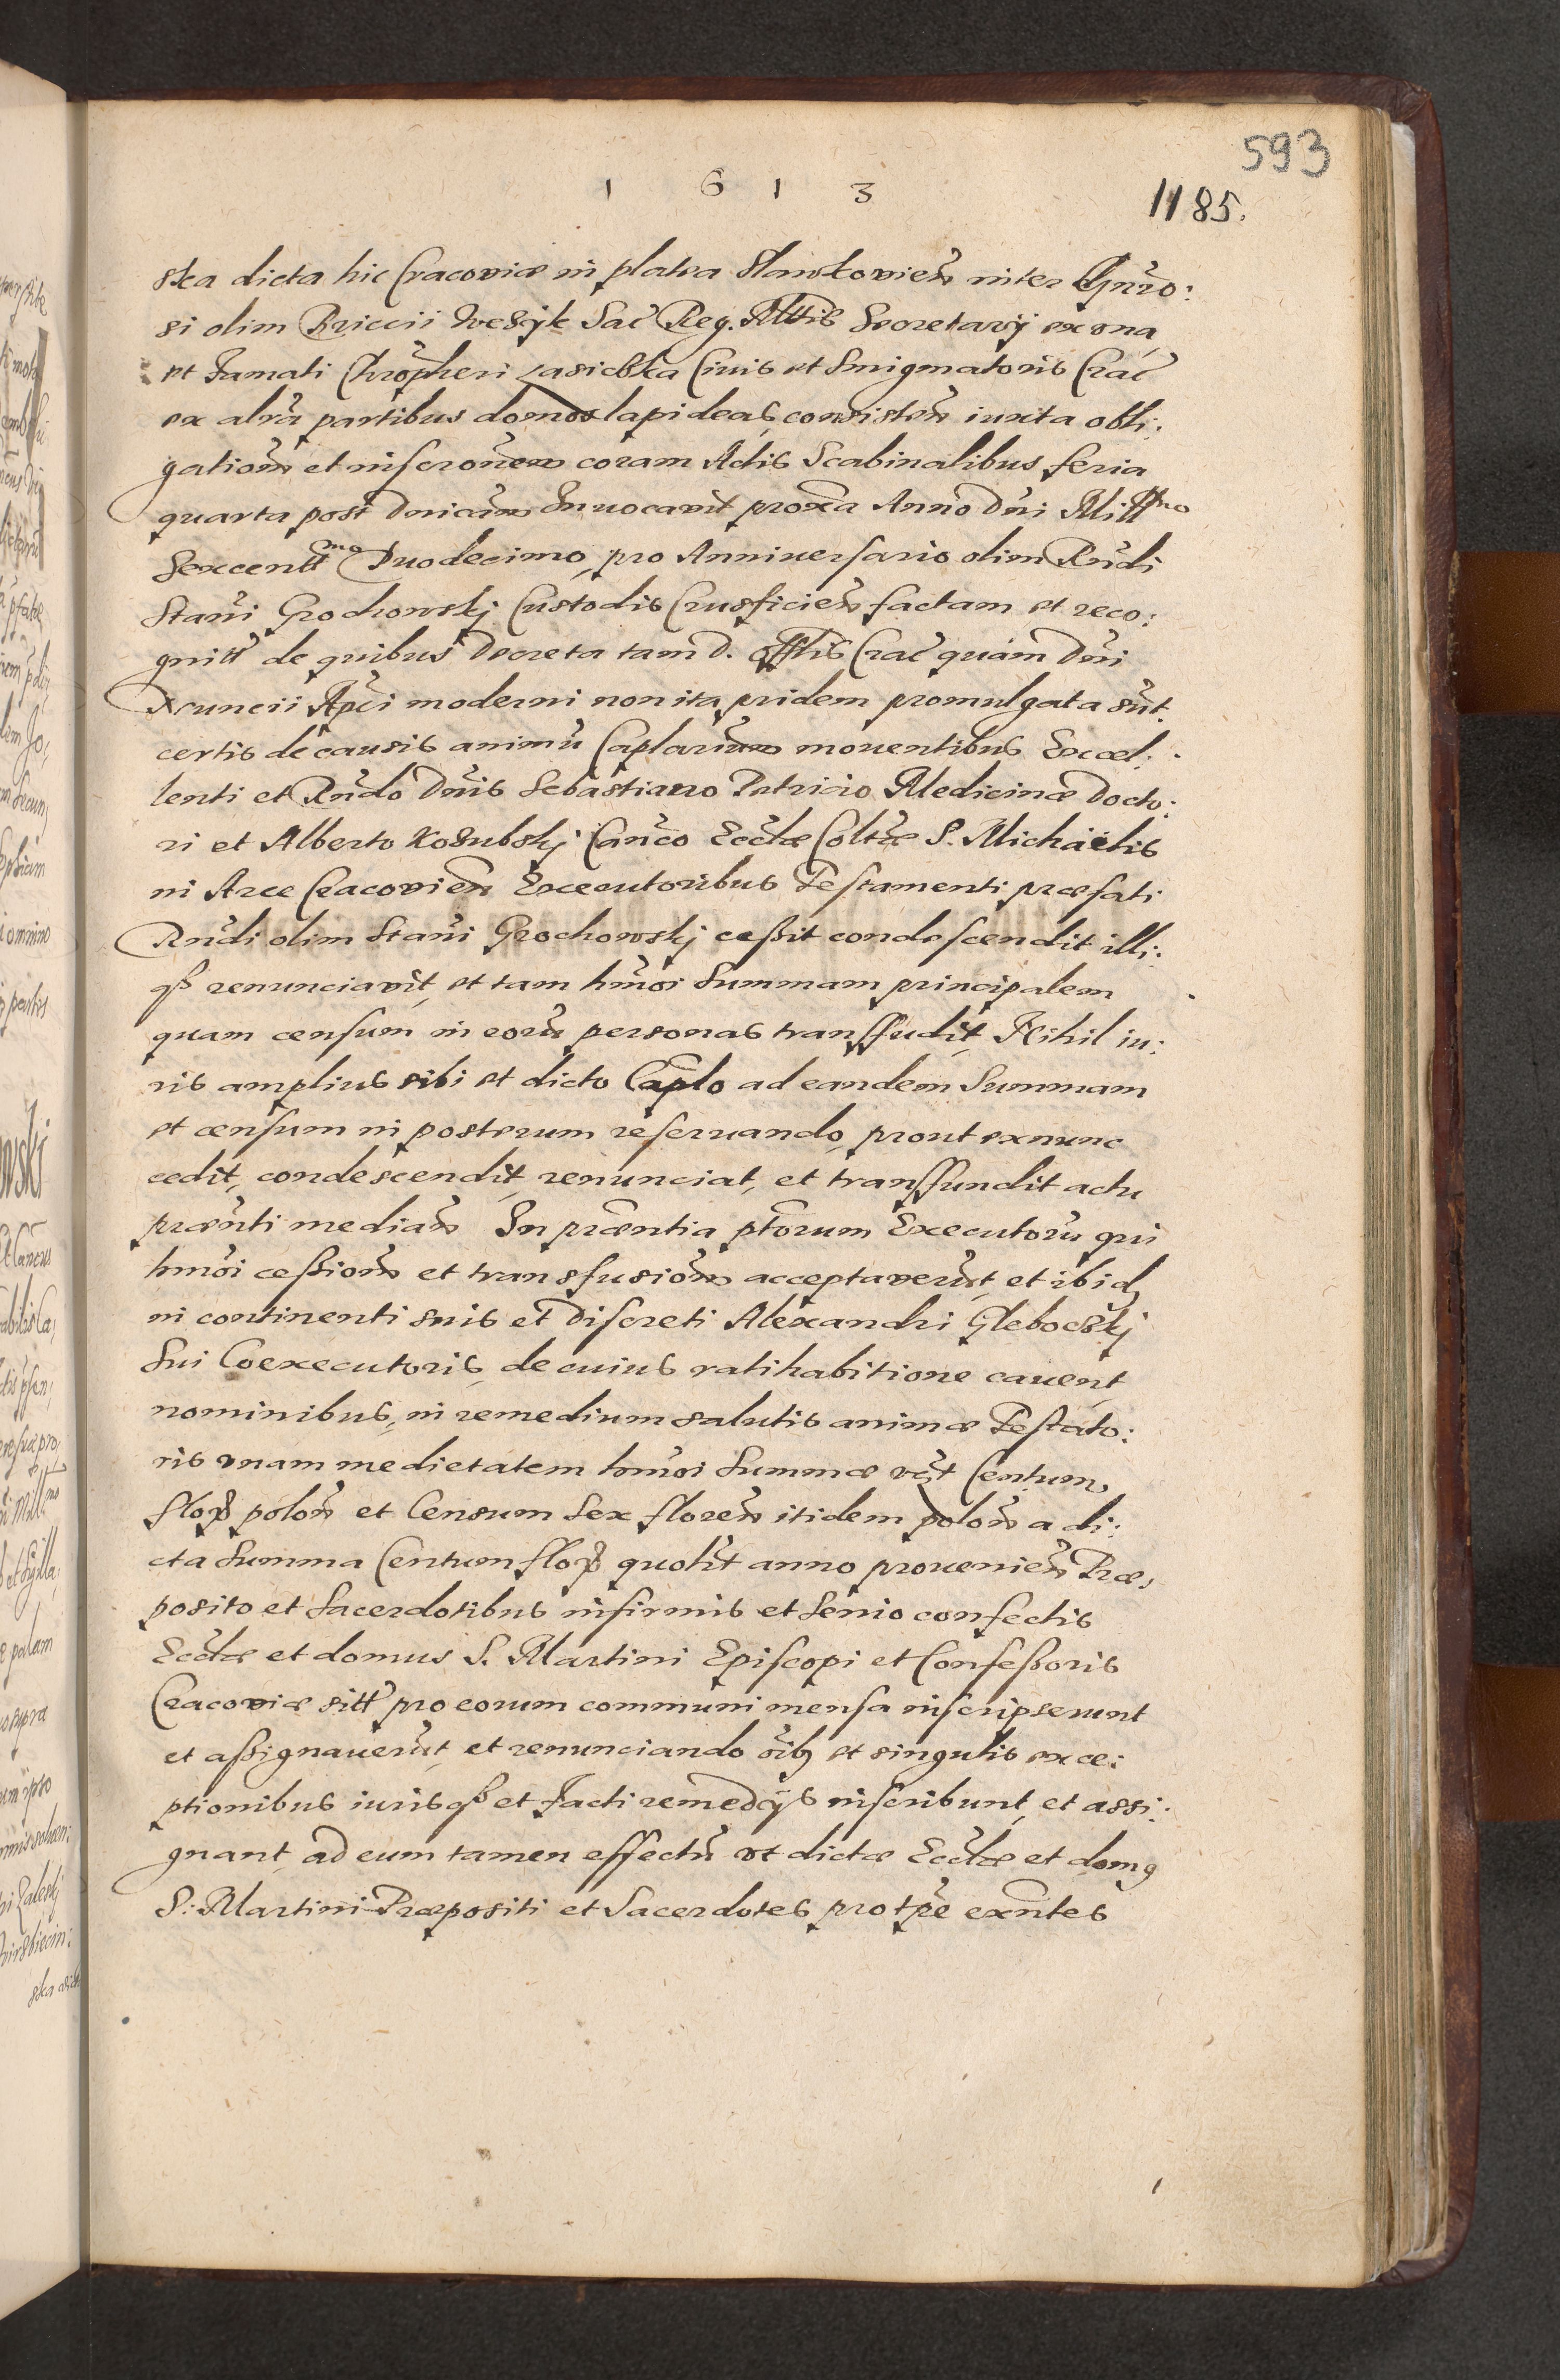 593
1613
1185.
ska dicta hic Cracoviæ in platea Slawkovien inter Gnro:
si olim Briccii Wesÿk Sac Reg. Mttis Secretarÿ ex una
et Famati Chrõpheri Casicska Civis et Smigmatoris Crac
ex alra partibus domos lapideas, consisten iuxta obli:
gationem et inscronem coram Actis Scabinalibus feria
quarta post Dnicam Invocavit proxa Anno Dni Millmo
Sexcentmo Duodecimo, pro Anniversario olim Rndi
Stani Grochowskj Custodis Crusficien factam et reco:
gnitt de quibus Decreta tam D. Offlis Crac quàm Dni
Nuncii Apci moderni non ita pridem promulgata sut.
certis de causis animũ Caplarium moventibus Excel:
lenti et Rndo Dnis Sebastiano Patricio Medicinæ Docto:
ri et Alberto Kosubskj Canco Ecclæ Coltæ S. Michaëlis
in Arce Cracovien Executoribus Testamenti præfati
Rndi olim Stani Grochowskj cessit condescendit illi:
qз renunciavit, et tam hmõi Summam principalem
quam censum in eorũ personas transfudit, Nihil iu:
ris amplius sibi et dicto Caplo ad eandem Summam
et censum in posterum reservando, prout ex nunc
cedit, condescendit, renunciat, et transfundit actu
prænti median In præntia ptorum Executorũ qui
hmõi cessionem et transfusionem acceptaverut, et ibid
in continenti suis et Discreti Alexandri Glebocskj
Sui Coexecutoris, de cuius ratihabitione cavent
nominibus, in remedium salutis animæ Testato:
ris unam medietatem hmõi Summæ vzt Centum
floꝝ polon et Censum Sex floren itidem polon a di:
cta Summa Centum floꝝ quolit anno provenien Præ,
posito et Sacerdotibus infirmis et senio confectis
Ecclæ et domus S. Martini Episcopi et Confessoris
Cracoviæ sitt pro eorum communi mensa inscripserunt
et assignaverut, et renunciando oibз et singulis exce:
ptionibus iurisqз et facti remedÿs inscribunt, et assi:
gnant, ad eum tamen effectũ ut dictæ Ecclæ et domꝯ
S: Martini Præpositi et Sacerdotes pro tpe exntes